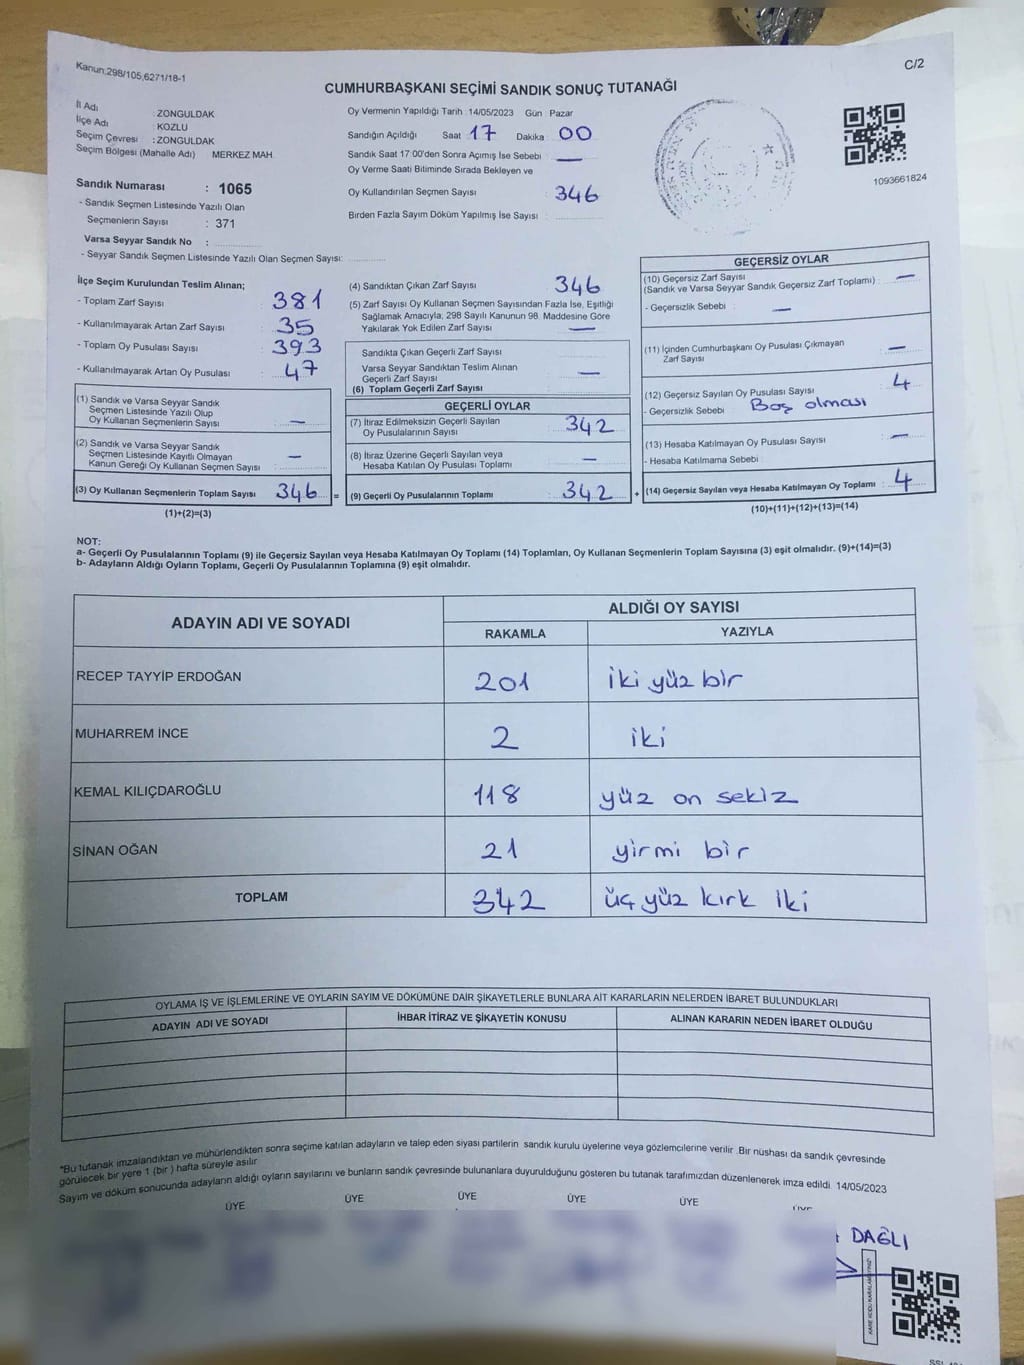 Kanun;298/105,6271/18-1
C/2
CUMHURBAŞKANI SEÇİMİ SANDIK SONUÇ TUTANAĞI
İl Adı : ZONGULDAK
İlçe Adı : KOZLU
Seçim Çevresi : ZONGULDAK
Seçim Bölgesi (Mahalle Adı) MERKEZ MAH.
Sandık Numarası : 1065
- Sandık Seçmen Listesinde Yazılı Olan
Seçmenlerin Sayısı : 371
Varsa Seyyar Sandık No :
- Seyyar Sandık Seçmen Listesinde Yazılı Olan Seçmen Sayısı:
Oy Vermenin Yapıldığı Tarih :14/05/2023 Gün Pazar
Sandığın Açıldığı Saat 17 Dakika : 00
Sandık Saat 17:00'den Sonra Açılmış İse Sebebi : —
Oy Verme Saati Bitiminde Sırada Bekleyen ve
Oy Kullandırılan Seçmen Sayısı : 346
Birden Fazla Sayım Döküm Yapılmış İse Sayısı :
1093661824
İlçe Seçim Kurulundan Teslim Alınan;
- Toplam Zarf Sayısı : 381
- Kullanılmayarak Artan Zarf Sayısı : 35
- Toplam Oy Pusulası Sayısı : 393
- Kullanılmayarak Artan Oy Pusulası : 47
(1) Sandık ve Varsa Seyyar Sandık
Seçmen Listesinde Yazılı Olup
Oy Kullanan Seçmenlerin Sayısı : —
(2) Sandık ve Varsa Seyyar Sandık
Seçmen Listesinde Kayıtlı Olmayan
Kanun Gereği Oy Kullanan Seçmen Sayısı : —
(3) Oy Kullanan Seçmenlerin Toplam Sayısı : 346 =
(1)+(2)=(3)
(4) Sandıktan Çıkan Zarf Sayısı : 346
(5) Zarf Sayısı Oy Kullanan Seçmen Sayısından Fazla İse, Eşitliği
Sağlamak Amacıyla; 298 Sayılı Kanunun 98. Maddesine Göre
Yakılarak Yok Edilen Zarf Sayısı : —
Sandıkta Çıkan Geçerli Zarf Sayısı
Varsa Seyyar Sandıktan Teslim Alınan
Geçerli Zarf Sayısı : —
(6) Toplam Geçerli Zarf Sayısı
GEÇERLİ OYLAR
(7) İtiraz Edilmeksizin Geçerli Sayılan
Oy Pusulalarının Sayısı : 342
(8) İtiraz Üzerine Geçerli Sayılan veya
Hesaba Katılan Oy Pusulası Toplamı : —
(9) Geçerli Oy Pusulalarının Toplamı : 342 +
GEÇERSİZ OYLAR
(10) Geçersiz Zarf Sayısı
(Sandık ve Varsa Seyyar Sandık Geçersiz Zarf Toplamı) : —
- Geçersizlik Sebebi : —
(11) İçinden Cumhurbaşkanı Oy Pusulası Çıkmayan
Zarf Sayısı : —
(12) Geçersiz Sayılan Oy Pusulası Sayısı : 4
- Geçersizlik Sebebi : Boş olması
(13) Hesaba Katılmayan Oy Pusulası Sayısı : —
- Hesaba Katılmama Sebebi :
(14) Geçersiz Sayılan veya Hesaba Katılmayan Oy Toplamı : 4
(10)+(11)+(12)+(13)=(14)
NOT:
a- Geçerli Oy Pusulalarının Toplamı (9) ile Geçersiz Sayılan veya Hesaba Katılmayan Oy Toplamı (14) Toplamları, Oy Kullanan Seçmenlerin Toplam Sayısına (3) eşit olmalıdır. (9)+(14)=(3)
b- Adayların Aldığı Oyların Toplamı, Geçerli Oy Pusulalarının Toplamına (9) eşit olmalıdır.
ADAYIN ADI VE SOYADI ALDIĞI OY SAYISI
RAKAMLA YAZIYLA
RECEP TAYYİP ERDOĞAN 201 iki yüz bir
MUHARREM İNCE 2 iki
KEMAL KILIÇDAROĞLU 118 yüz on sekiz
SİNAN OĞAN 21 yirmi bir
TOPLAM 342 üç yüz kırk iki
OYLAMA İŞ VE İŞLEMLERİNE VE OYLARIN SAYIM VE DÖKÜMÜNE DAİR ŞİKAYETLERLE BUNLARA AİT KARARLARIN NELERDEN İBARET BULUNDUKLARI
ADAYIN ADI VE SOYADI İHBAR İTİRAZ VE ŞİKAYETİN KONUSU ALINAN KARARIN NEDEN İBARET OLDUĞU
*Bu tutanak imzalandıktan ve mühürlendikten sonra seçime katılan adayların ve talep eden siyasi partilerin sandık kurulu üyelerine veya gözlemcilerine verilir. Bir nüshası da sandık çevresinde
görülecek bir yere 1 (bir) hafta süreyle asılır.
Sayım ve döküm sonucunda adayların aldığı oyların sayılarını ve bunların sandık çevresinde bulunanlara duyurulduğunu gösteren bu tutanak tarafımızdan düzenlenerek imza edildi. 14/05/2023
ÜYE ÜYE ÜYE ÜYE ÜYE
DAĞLI